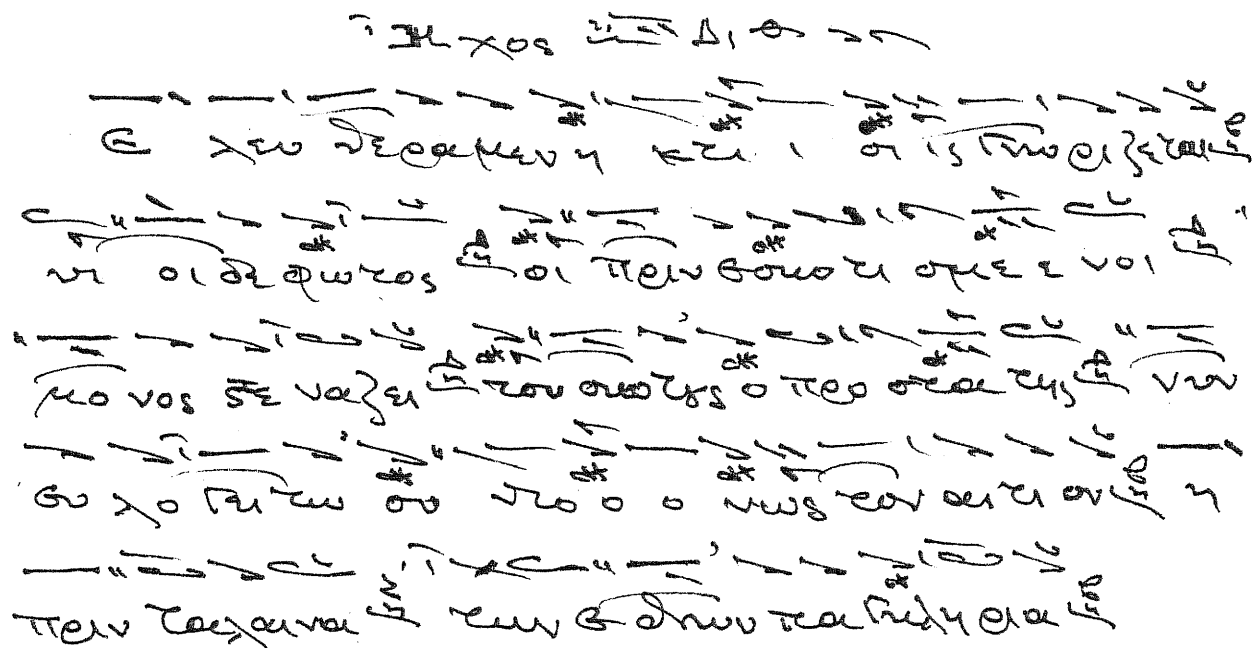 Ηχος Δι
Ε λευ θεραμεν η κτι ι σι ις γνωριζεται
υι οι δε φωτος οι πριν εσκοτι σμε ε νοι
μο νος στε ναζει του σκοτους ο προ στα της νυν
ευ λο γει τω συ ντο ο ο νως τον αι τι ον η
πριν ταλαινα των ε θνων παγκλη ρια